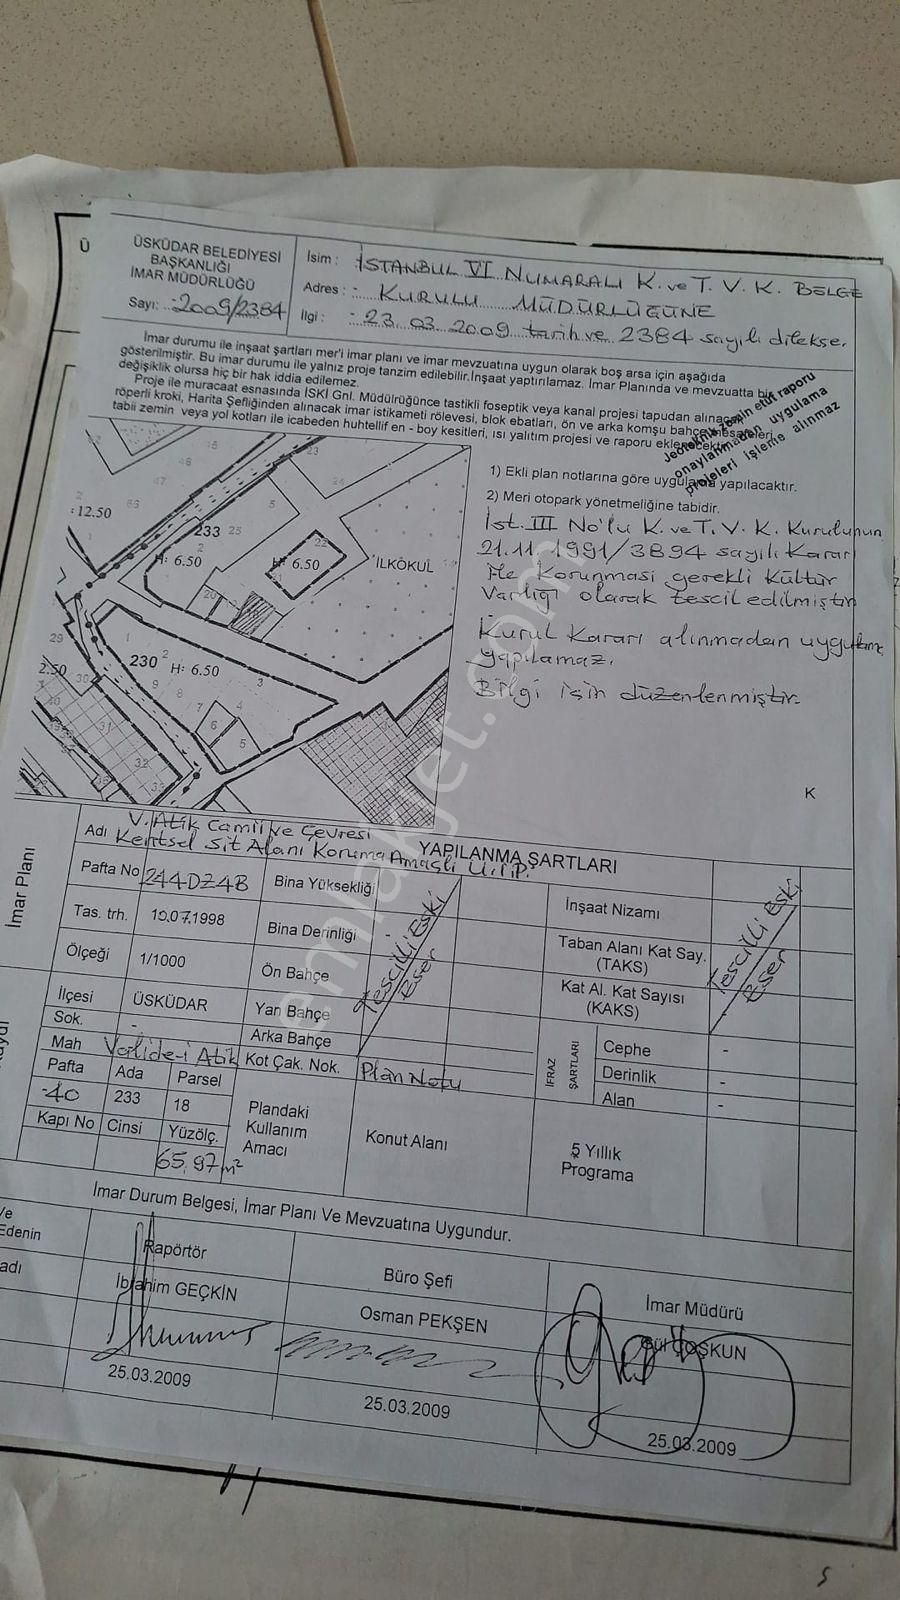 Ü
ÜSKÜDAR BELEDİYESİ
BAŞKANLIĞI
İMAR MÜDÜRLÜĞÜ
Sayı: 2009/2384
İsim : İSTANBUL VI NUMARALI K. ve T. V. K. BELGE
Adres : KURULU MÜDÜRLÜĞÜNE
İlgi : 23.03.2009 tarih ve 2384 sayılı dilekçe.
İmar durumu ile inşaat şartları mer'i imar planı ve imar mevzuatına uygun olarak boş arsa için aşağıda
gösterilmiştir. Bu imar durumu ile yalnız proje tanzim edilebilir.İnşaat yaptırılamaz. İmar Planında ve mevzuatta bir
değişiklik olursa hiç bir hak iddia edilemez.
Proje ile muracaat esnasında İSKİ Gnl. Müdürlüğünce tastikli foseptik veya kanal projesi tapudan alınacak
röperli kroki, Harita Şefliğinden alınacak imar istikameti rölevesi, blok ebatları, ön ve arka komşu bahçe mesafeleri
tabii zemin veya yol kotları ile icabeden huhtellif en - boy kesitleri, ısı yalıtım projesi ve raporu eklenecektir.
Jeoteknik zemin etüt raporu
onaylanmadan uygulama
projeleri işleme alınmaz
1) Ekli plan notlarına göre uygulama yapılacaktır.
2) Meri otopark yönetmeliğine tabidir.
İst. III No'lu K. ve T. V. K. Kurulunun
21.11.1991/3894 sayılı Kararı
ile Korunması gerekli Kültür
Varlığı olarak tescil edilmiştir
Kurul Kararı alınmadan uygulama
yapılamaz.
Bilgi için düzenlenmiştir.
K
:12.50
233
H: 6.50
H: 6.50
İLKOKUL
230
H: 6.50
2.50
emlakjet.com
İmar Planı
Adı V. Atik Camii ve Çevresi
Kentsel Sit Alanı Koruma Amaçlı U.İ.P.
YAPILANMA ŞARTLARI
Pafta No 244DZ4B
Bina Yüksekliği
İnşaat Nizamı
Tas. trh. 10.07.1998
Bina Derinliği
Taban Alanı Kat Say.
(TAKS)
Ölçeği 1/1000
Ön Bahçe
Kat Al. Kat Sayısı
(KAKS)
Tescilli Eski
Eser
Tescilli Eski
Eser
İlçesi ÜSKÜDAR
Yan Bahçe
Sok. -
Arka Bahçe
Mah Valide-i Atik
Kot Çak. Nok. Plan Notu
İFRAZ
ŞARTLARI
Cephe -
Derinlik -
Alan -
Pafta Ada Parsel
40 233 18
Kapı No Cinsi Yüzölç.
65,97 m²
Plandaki
Kullanım
Amacı
Konut Alanı
5 Yıllık
Programa
İmar Durum Belgesi, İmar Planı Ve Mevzuatına Uygundur.
Ve
Edenin
adı
Rapörtör
Büro Şefi
İmar Müdürü
İbrahim GEÇKİN
Osman PEKŞEN
Gül COŞKUN
25.03.2009
25.03.2009
25.03.2009